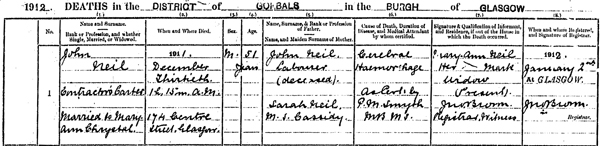 1912. DEATHS in the DISTRICT of GORBALS in the BURGH of GLASGOW
(1.) (2.) (3.) (4.) (5.) (6.) (7.) (8.)
No. Name and Surname. Rank or Profession, and whether Single, Married, or Widowed. When and Where Died. Sex. Age. Name, Surname, & Rank or Profession of Father. Name, and Maiden Surname of Mother. Cause of Death, Duration of Disease, and Medical Attendant by whom certified. Signature & Qualification of Informant, and Residence, if out of the House in which the Death occurred. When and where Registered, and Signature of Registrar.
John 1911, M. 51 John Neil Cerebral Mary Ann Neil 1912.
Neil December years Labourer Haemorrhage Her X Mark January 2nd
Thirtieth. (deceased) Widow At GLASGOW.
1 Contractor's Carter 1h. 15m. A.M. As Cert. by Present.
Sarah Neil P. M. Smyth Jno Brown Jno Brown
Married to Mary 174 Centre M.S. Cassidy MB MS Registrar, Witness. Registrar.
Ann Chrystal. Street, Glasgow.